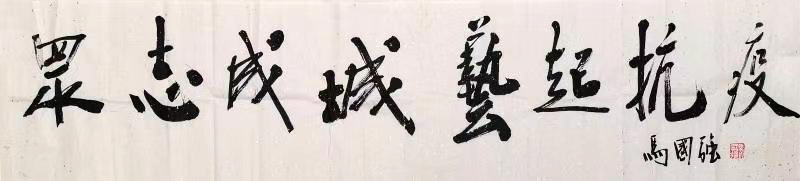 眾志成城藝起抗疫
馬國強